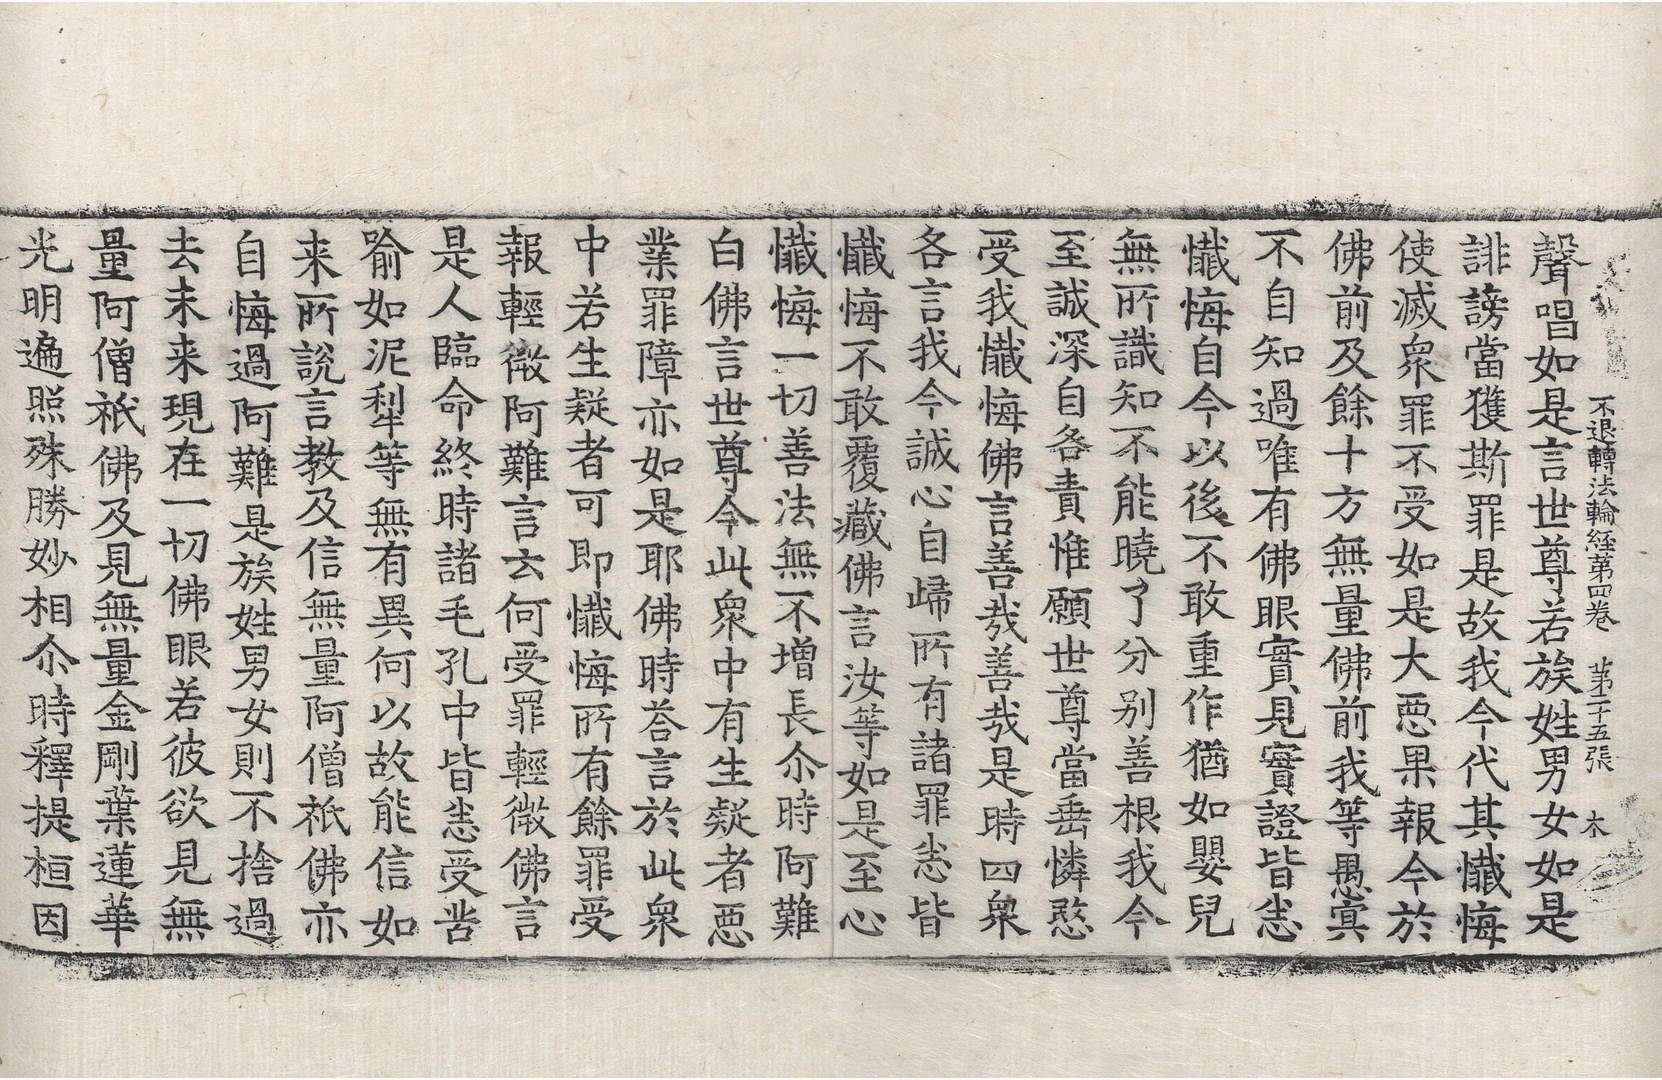 不退轉法輪経第四卷　第二十五張　木
聲唱如是言世尊若族姓男女如是
誹謗當獲斯罪是故我今代其懺悔
使滅衆罪不受如是大惡果報今於
佛前及餘十方無量佛前我等愚㝠
不自知過唯有佛眼實見實證皆悉
懺悔自今以後不敢重作猶如嬰兒
無所識知不能曉了分别善根我今
至誠深自咎責惟願世尊當垂憐愍
受我懺悔佛言善哉善哉是時四衆
各言我今誠心自歸所有諸罪悉皆
懺悔不敢覆藏佛言汝等如是至心
懺悔一切善法無不增長尒時阿難
白佛言世尊今此衆中有生疑者惡
業罪障亦如是耶佛時荅言於此衆
中若生疑者可即懺悔所有餘罪受
報輕微阿難言云何受罪輕微佛言
是人臨命終時諸毛孔中皆悉受苦
喻如泥犁等無有異何以故能信如
来所説言教及信無量阿僧祇佛亦
自悔過阿難是族姓男女則不捨過
去未来現在一切佛眼若彼欲見無
量阿僧祇佛及見無量金剛葉蓮華
光明遍照殊勝妙相尒時釋提桓因